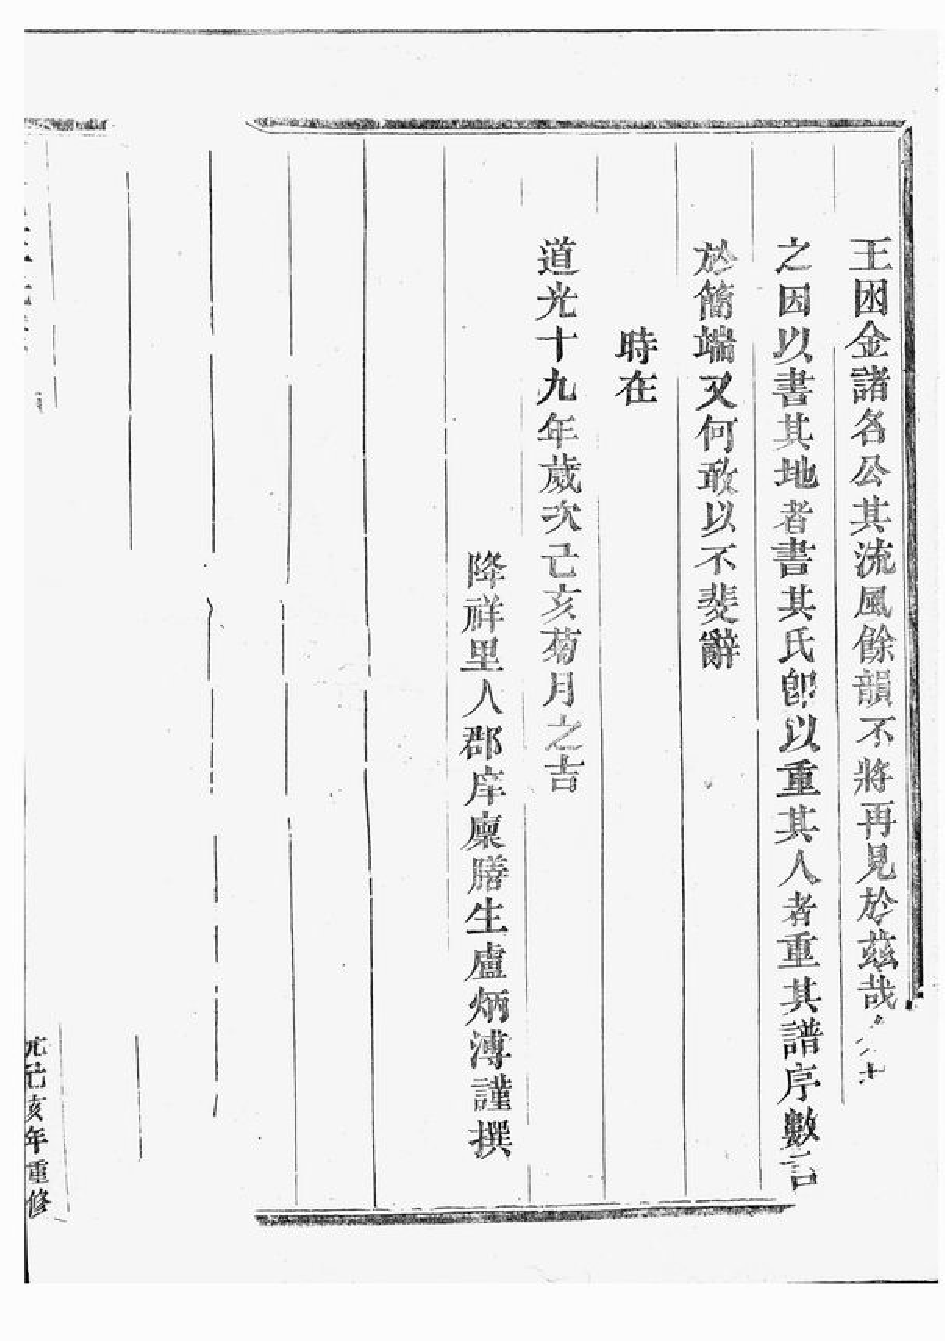 王因金諸名公其流風餘韻不將再見於茲哉
之因以書其地者書其氏卽以重其人者重其譜序數言
於簡端又何敢以不斐辭
時在
道光十九年歲次己亥菊月之吉
降祥里人郡庠廩膳生盧炳溥謹撰
光己亥年重修